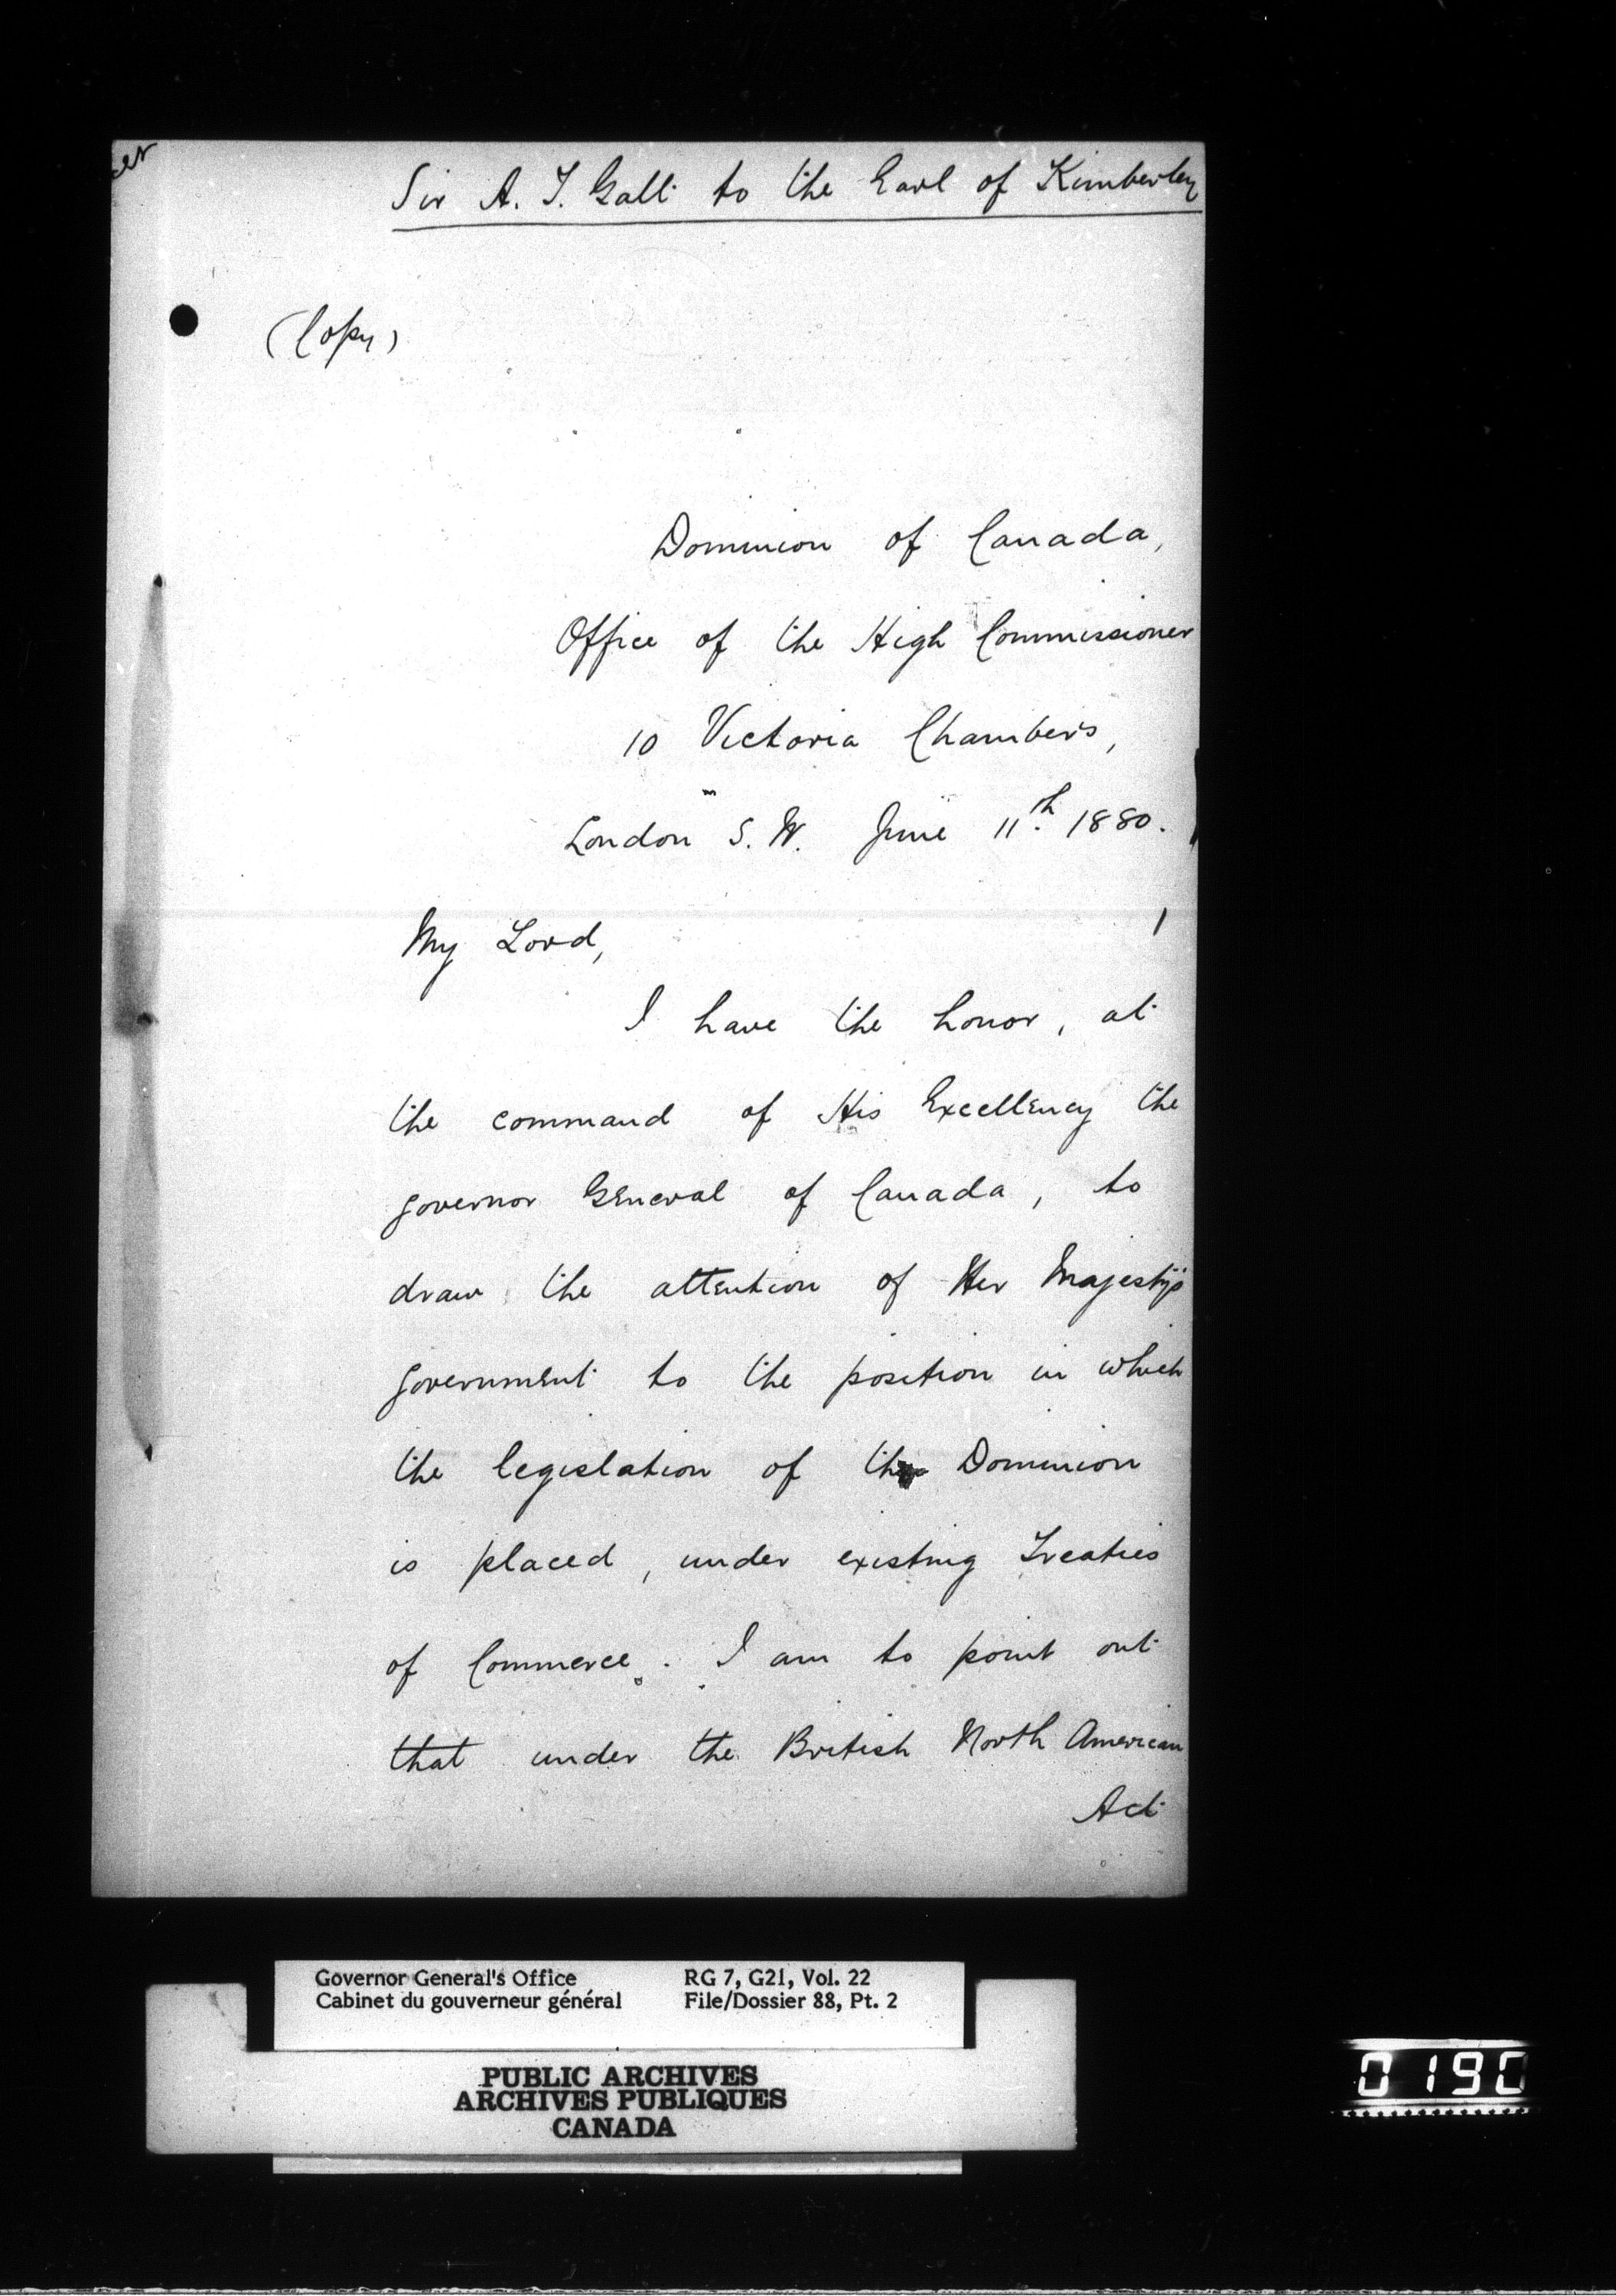 Sir A. T. Galt to the Earl of Kimberley
(Copy)
Dominion of Canada,
Office of the High Commissioner
10 Victoria Chambers,
London S. W. June 11th. 1880.
My Lord,
I have the honor, at
the command of His Excellency the
Governor General of Canada, to
draw the attention of Her Majesty's
Government to the position in which
the legislation of the Dominion
is placed, under existing Treaties
of Commerce. I am to point out
that under the British North American
Act
Governor General's Office
Cabinet du gouverneur général
RG 7, G21, Vol. 22
File/Dossier 88, Pt. 2
PUBLIC ARCHIVES
ARCHIVES PUBLIQUES
CANADA
0190